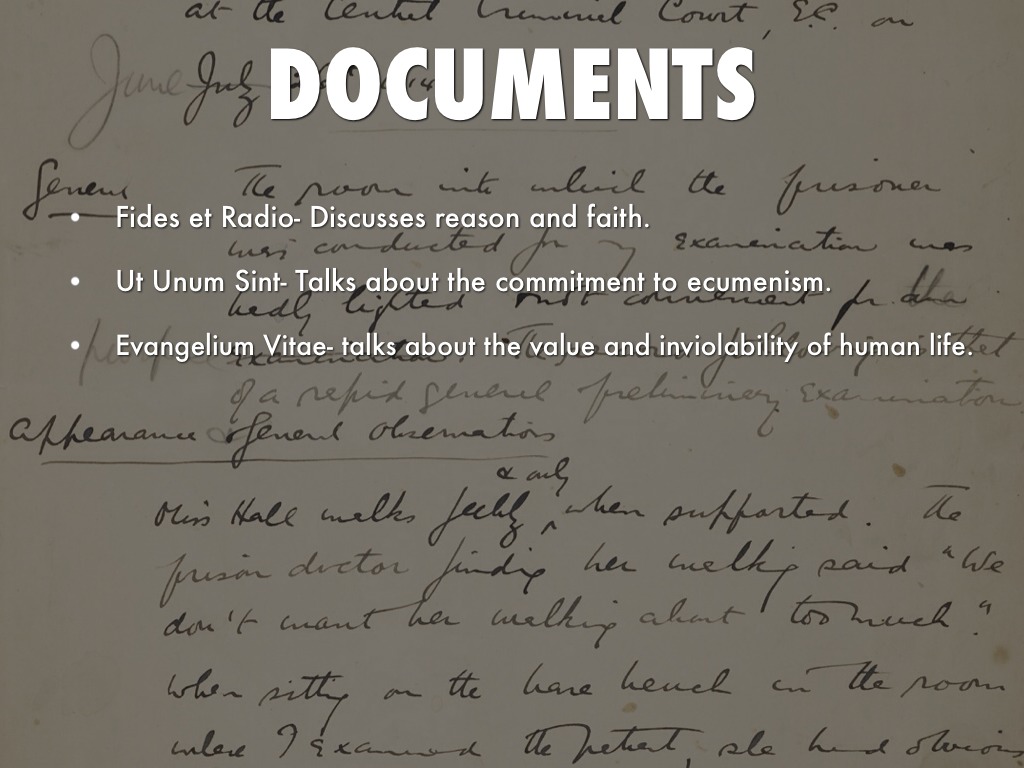 at the Central Criminal Court, E.C. on
DOCUMENTS
June July
General The room into which the prisoner
• Fides et Radio- Discusses reason and faith.
was conducted for my examination was
• Ut Unum Sint- Talks about the commitment to ecumenism.
badly lighted most convenient for
• Evangelium Vitae- talks about the value and inviolability of human life.
examination
of a rapid general preliminary examination
Appearance & general observations
& only
Miss Hall walks feebly when supported. The
prison doctor finding her walking said "We
don't want her walking about too much".
When sitting on the bare bench in the room
where I examined the patient, she had obvious